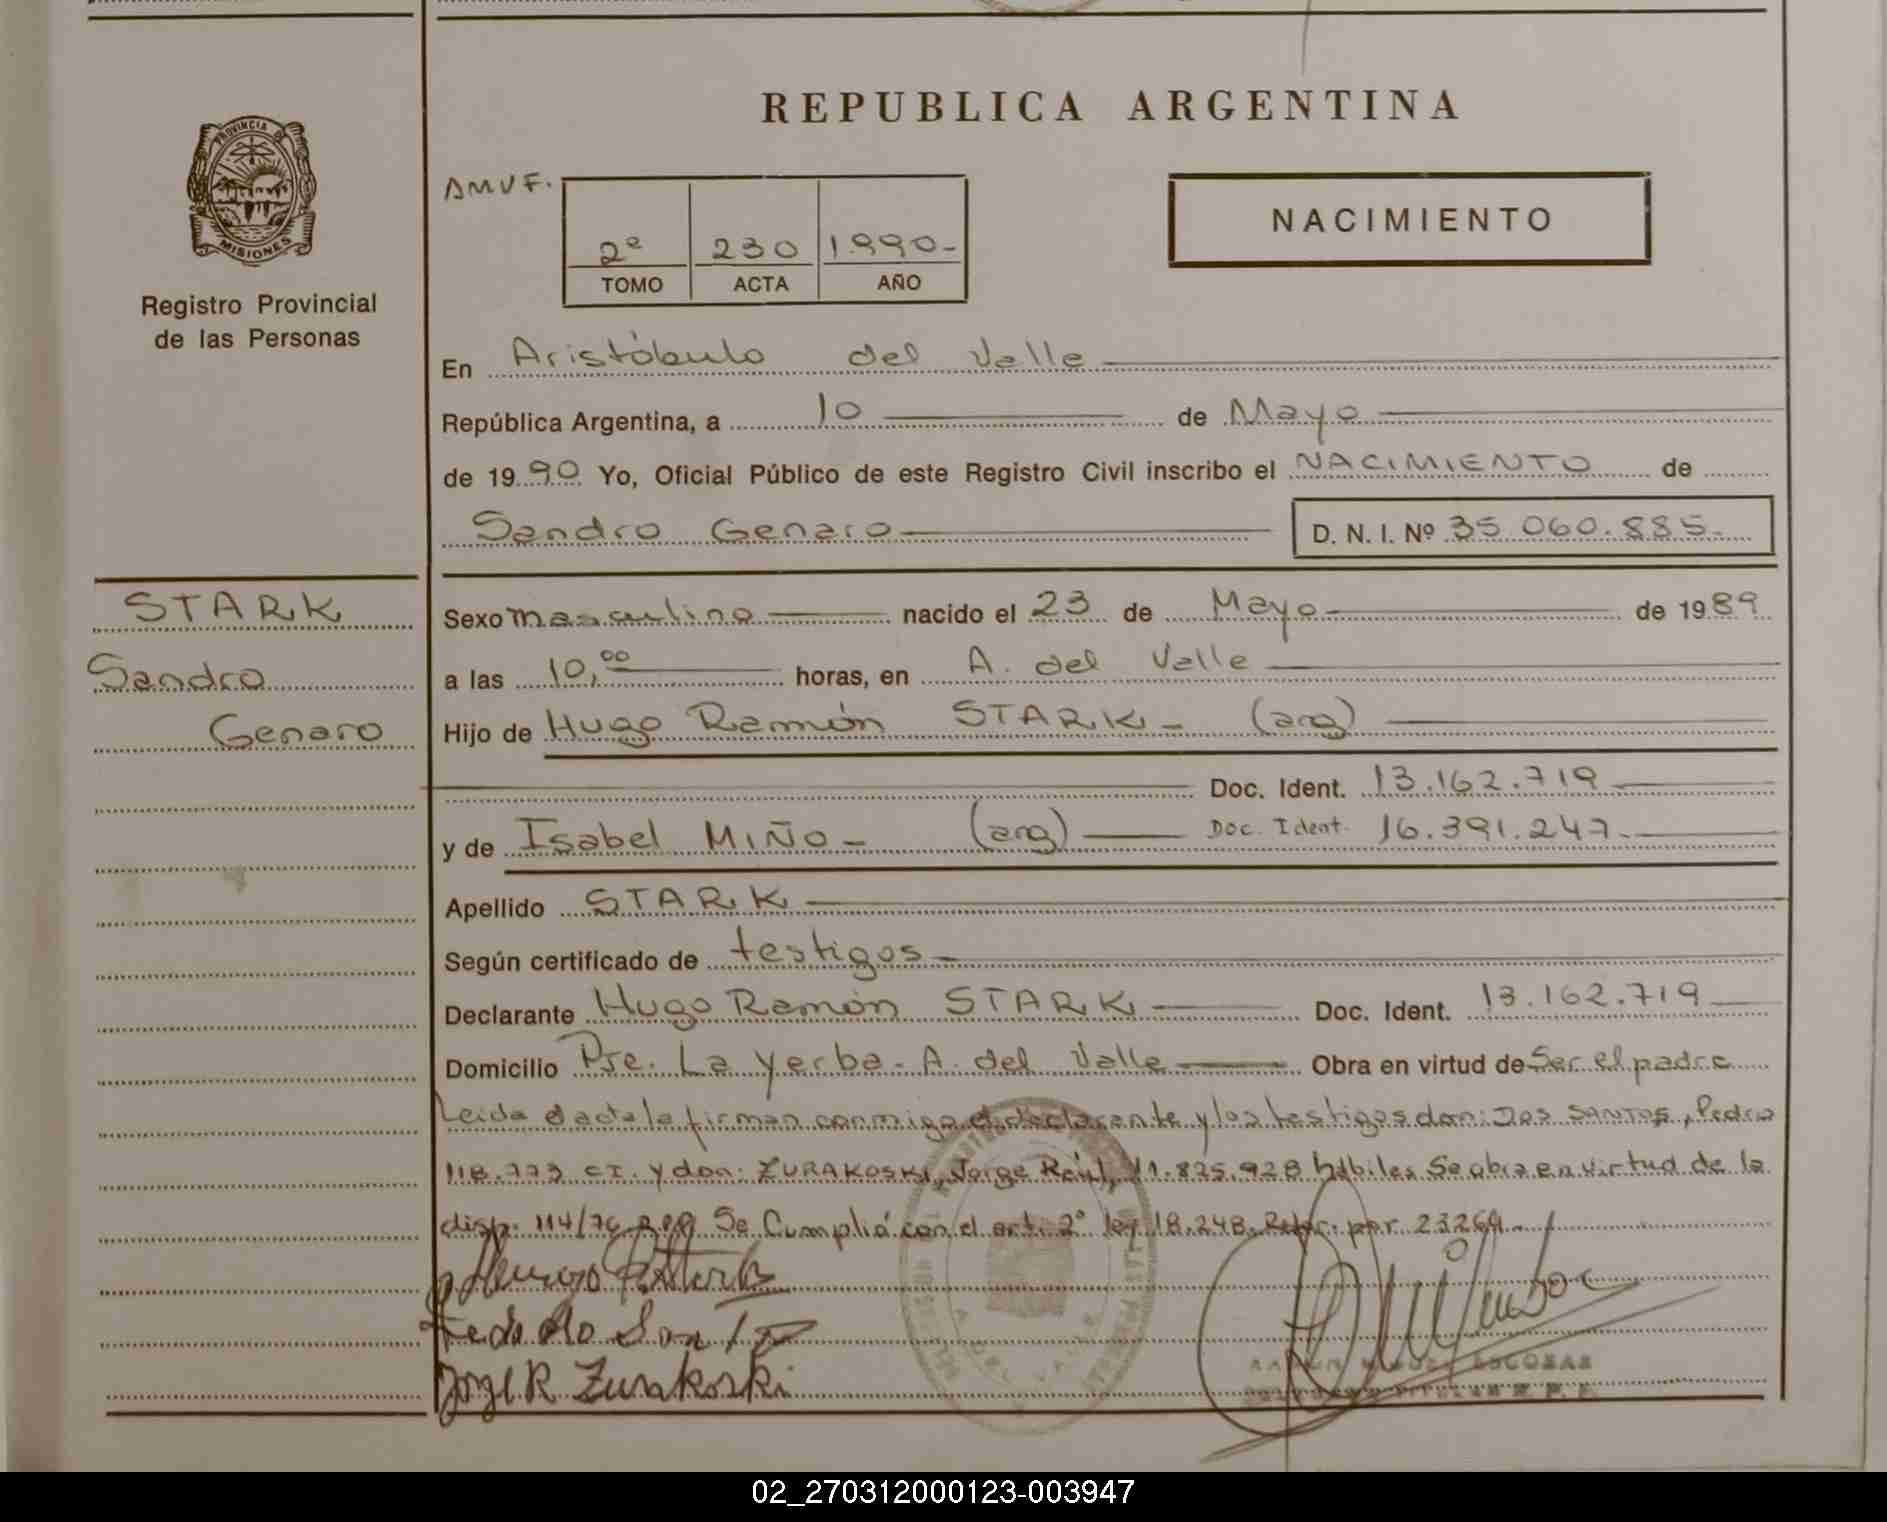 REPUBLICA ARGENTINA
PROVINCIA DE
MISIONES
Registro Provincial
de las Personas
AMVF.
2º 230 1.990-
TOMO ACTA AÑO
NACIMIENTO
En Aristóbulo del Valle
República Argentina, a 10 de Mayo
de 1990 Yo, Oficial Público de este Registro Civil inscribo el NACIMIENTO de
Sandro Genaro D. N. I. Nº 35.060.885.-
STARK
Sandro
Genaro
Sexo masculino nacido el 23 de Mayo de 1989
a las 10,00 horas, en A. del Valle
Hijo de Hugo Ramón STARK- (arg)
Doc. Ident. 13.162.719
y de Isabel MIÑO- (arg) Doc. Ident. 16.391.247.
Apellido STARK
Según certificado de testigos-
Declarante Hugo Ramón STARK Doc. Ident. 13.162.719
Domicilio Pje. La Yerba-A. del Valle Obra en virtud de Ser el padre
Leida el acta la firman conmigo el declarante y los testigos don: DOS SANTOS, Pedro
118.773 CI. y don: ZURAKOSKI, Jorge Raúl, 11.825.928 hábiles Se obra en virtud de la
disp. 114/76 Se Cumplió con el art. 2º ley 18.248. por 23264.-
Jorge R Zurakoski
ESCOBAR
02_270312000123-003947